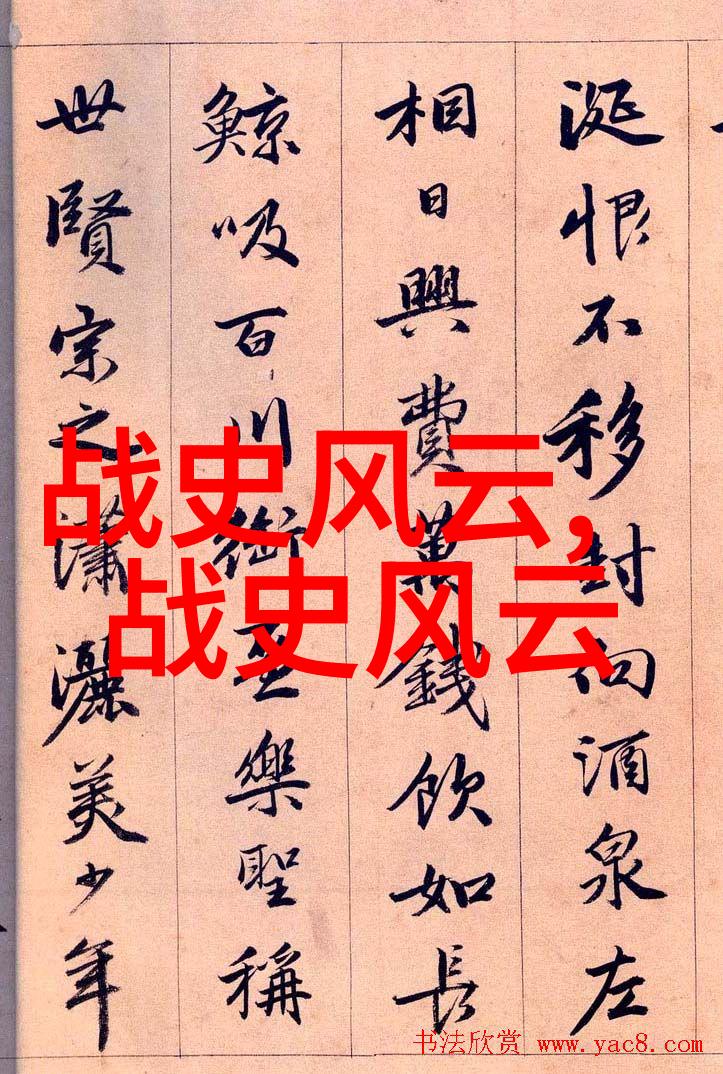 涎恨不移封向酒泉左
相日興費萬錢飲如長
鯨吸百川銜盃樂聖稱
世賢宗之瀟灑美少年
战史风云，
战史风云
书法欣赏 www.yac8.com